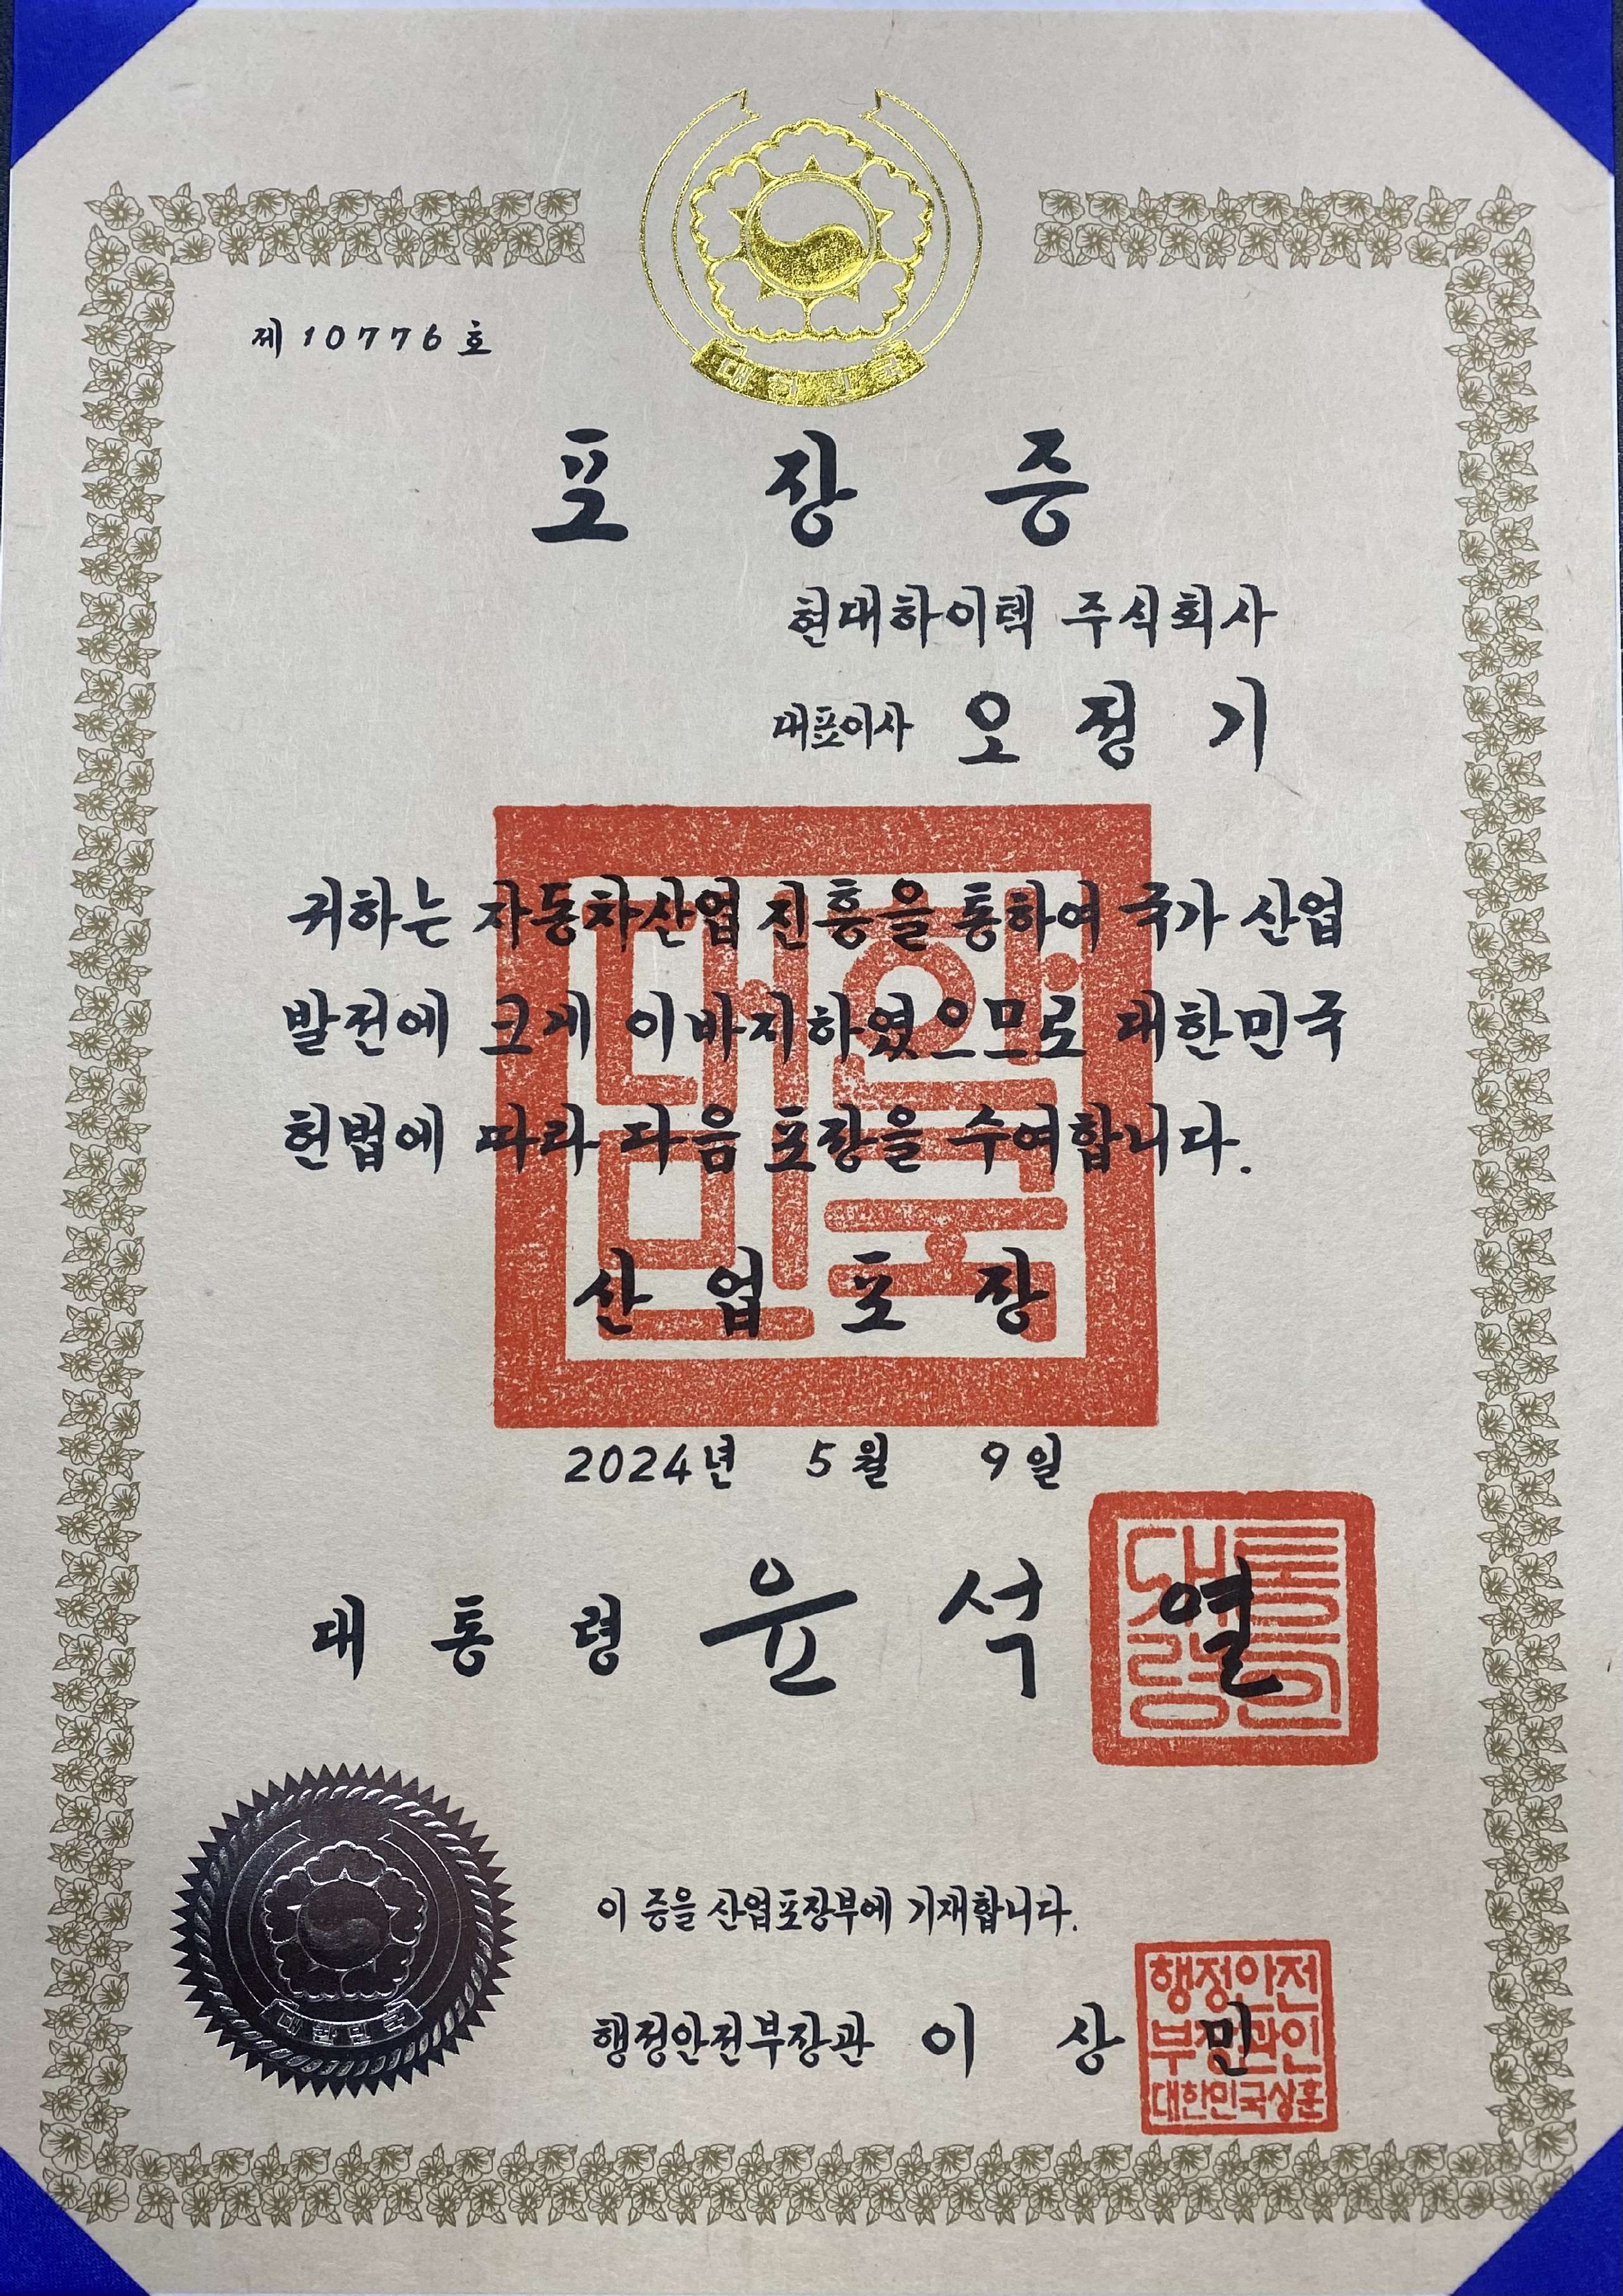 대한민국
제 10776 호
포장증
현대하이텍 주식회사
대표이사 오정기
귀하는 자동차산업 진흥을 통하여 국가 산업
발전에 크게 이바지하였으므로 대한민국
헌법에 따라 다음 포장을 수여합니다.
산업포장
대한
민국
2024년 5월 9일
대통령 윤석열
대통
령인
이 증을 산업포장부에 기재합니다.
행정안전부장관 이상민
행정안전
부장관인
대한민국상훈
대한민국